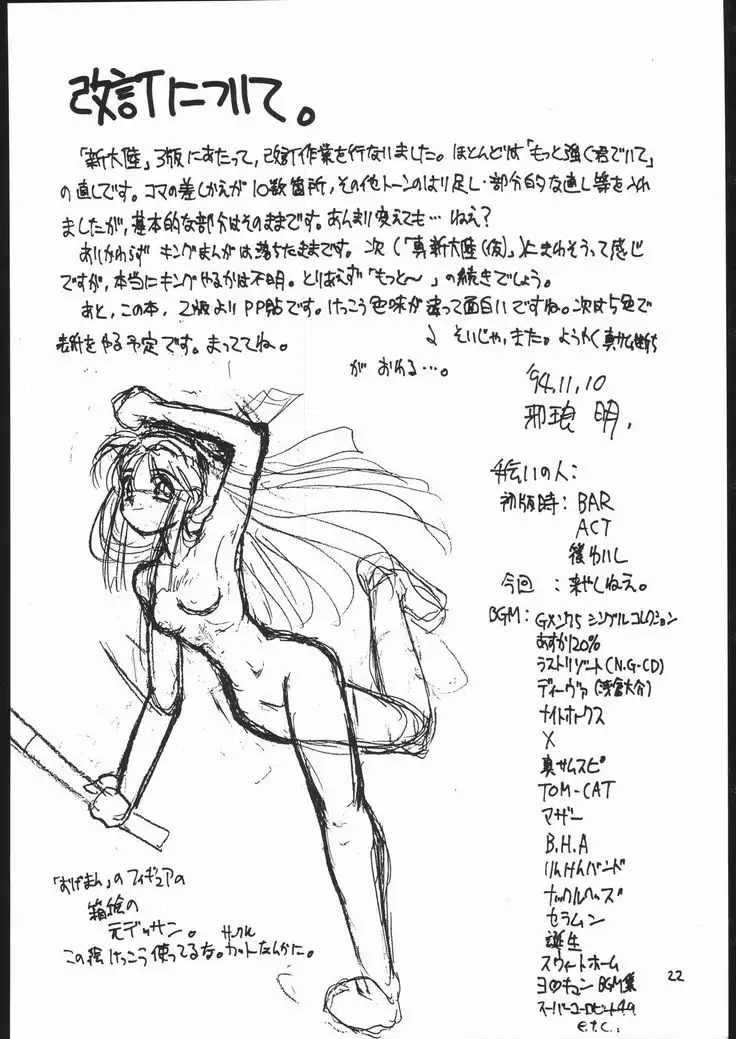 改訂について。
「新大陸」3版にあたって,改訂作業を行ないました。ほとんどは「もっと強く君でいて」
の直しです。コマの差しかえが10数箇所,その他トーンのはり足し・部分的な直し等を入れ
ましたが,基本的な部分はそのままです。あんまり変えても…ねえ?
あいかわらずキングまんがは落ちたままです。次(「真新大陸(仮)」)にまわそうって感じ
ですが,本当にキングやるかは不明。とりあえず「もっと〜」の続きでしょう。
あと,この本,2版よりPP貼です。けっこう色味が違って面白いですね。次は5色で
表紙をやる予定です。まっててね。
そいじゃ,また。ようやく真サム
がおわる…。
'94.11.10
邪琅 明.
手伝いの人:
初版時:BAR
ACT
後わいし
今回:来やしねえ。
BGM:シングルコレクション
あすか120%
ラストリゾート(N.G-CD)
ディーヴァ(浅倉大介)
ナイトホークス
X
真サムスピ
TOM-CAT
マザー
B.H.A
りんけんバンド
ナックルヘッズ
セラムン
誕生
スウィートホーム
BGM集
スーパーユーロビート49
e.t.c.:
「おげまん」のフィギュアの
箱絵の
元デッサン。
サークル
この絵けっこう使ってるな。カットなんかに。
22